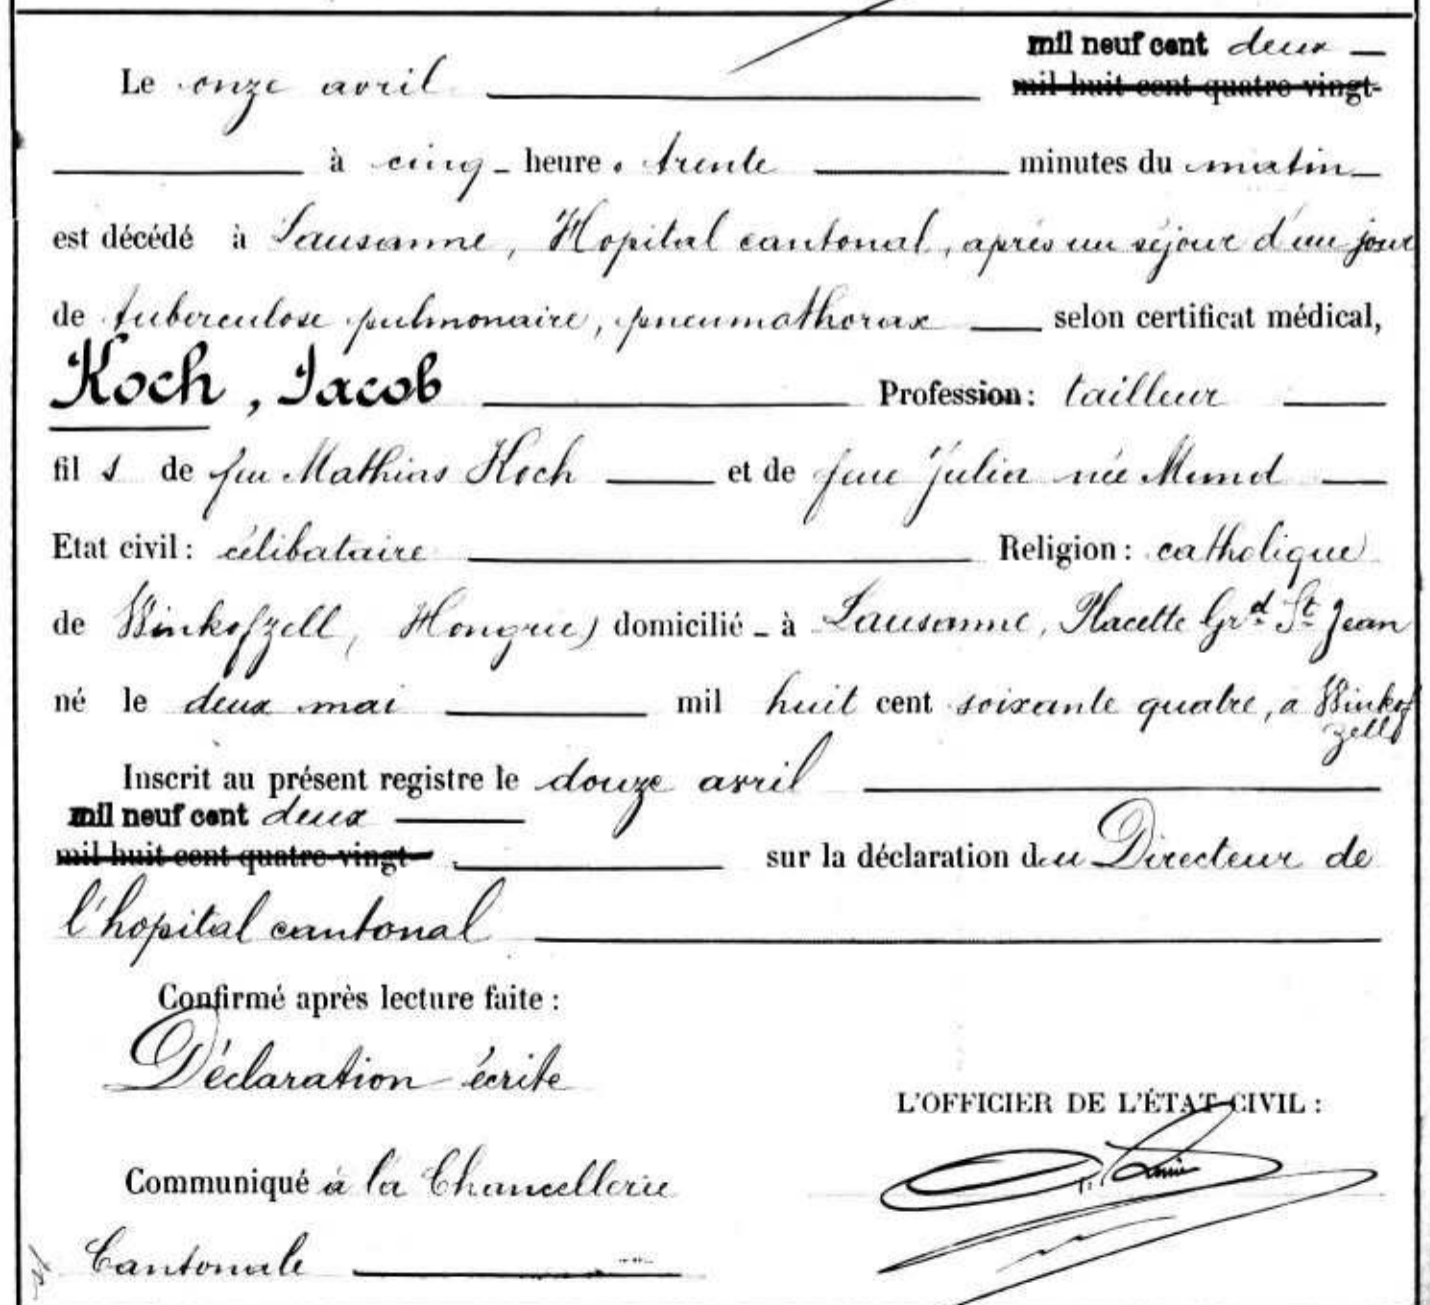 mil neuf cent deux
Le onze avril mil huit cent quatre-vingt-
à cinq heure s trente minutes du matin
est décédé à Lausanne, Hopital cantonal, après un séjour d'un jour
de tuberculose pulmonaire, pneumothorax selon certificat médical,
Koch, Jacob Profession: tailleur
fil s de feu Mathias Koch et de feue Julia née Mund
Etat civil: célibataire Religion: catholique
de Winkofzell, Hongrie) domicilié à Lausanne, Placette Grd St Jean
né le deux mai mil huit cent soixante quatre, à Winkof
zell
Inscrit au présent registre le douze avril
mil neuf cent deux
mil huit cent quatre-vingt- sur la déclaration du Directeur de
l'hopital cantonal
Confirmé après lecture faite :
Déclaration écrite
L'OFFICIER DE L'ÉTAT CIVIL :
Communiqué à la Chancellerie
Cantonale